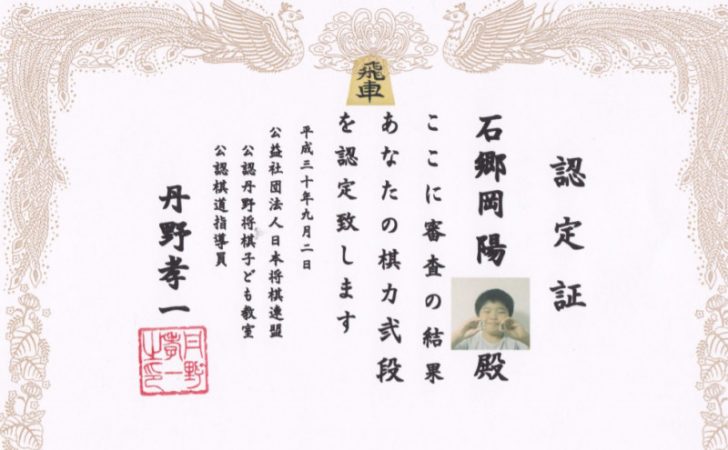 飛車
認定証
石郷岡陽殿
ここに審査の結果
あなたの棋力弐段
を認定致します
平成三十年九月二日
公益社団法人日本将棋連盟
公認丹野将棋子ども教室
公認棋道指導員
丹野孝一